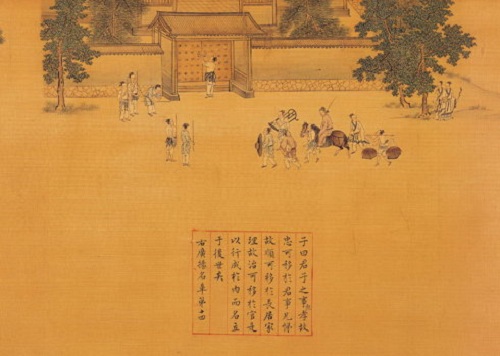 子曰君子之事孝故
忠可移於君事兄悌
故順可移於長居家
理故治可移於官是
以行成於內而名立
于後世矣
右廣揚名章第十四